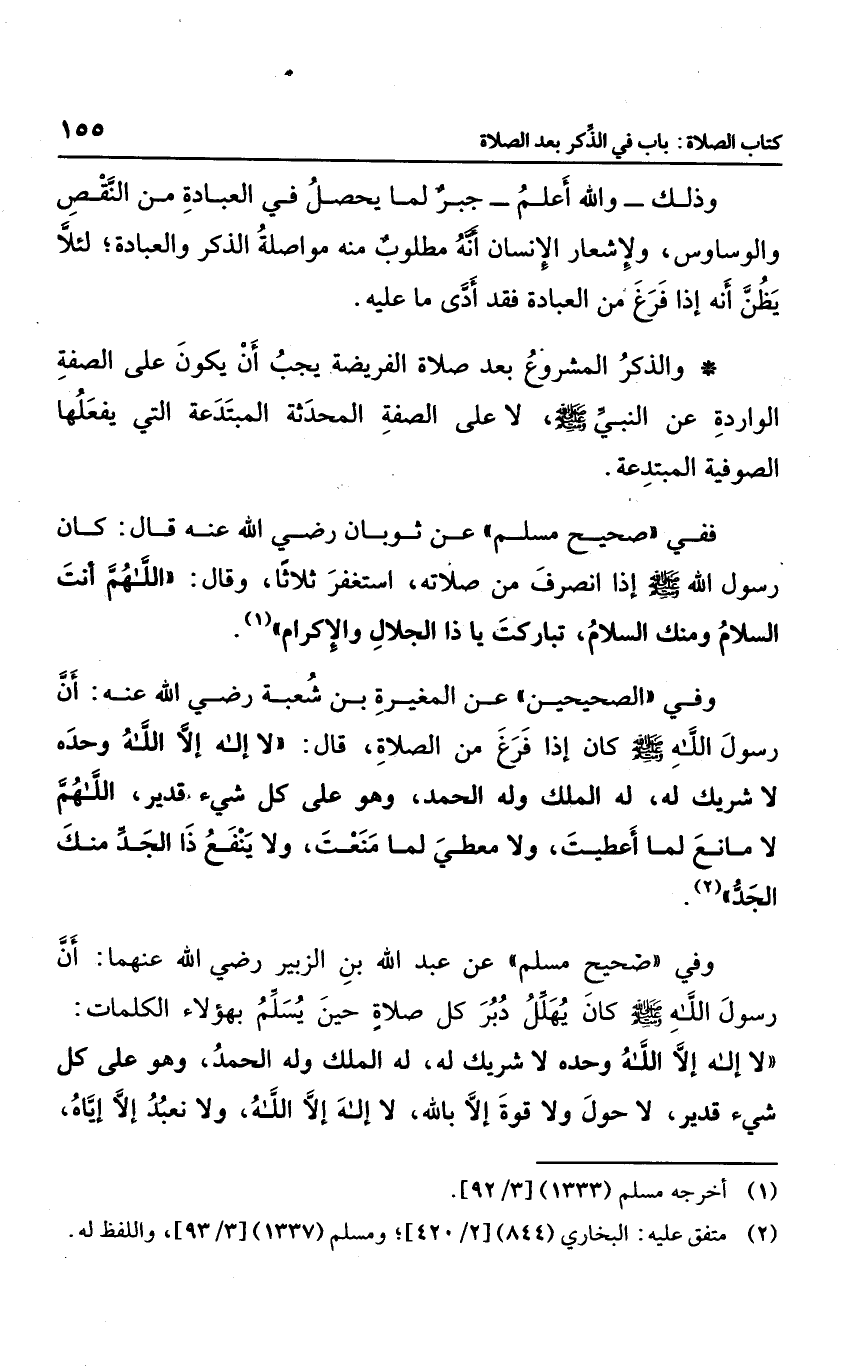 كتاب الصلاة: باب في الذِّكر بعد الصلاة ١٥٥
وذلك ــ والله أَعلمُ ــ جبرٌ لما يحصلُ في العبادةِ من النَّقْصِ
والوساوس، ولإِشعار الإِنسان أَنَّهُ مطلوبٌ منه مواصلةُ الذكر والعبادة؛ لئلاَّ
يَظُنَّ أَنه إذا فَرَغَ من العبادة فقد أَدَّى ما عليه.
* والذكرُ المشروعُ بعد صلاة الفريضة يجبُ أَنْ يكونَ على الصفةِ
الواردةِ عن النبيِّ ﷺ، لا على الصفةِ المحدَثة المبتَدَعة التي يفعَلُها
الصوفية المبتدِعة.
ففي «صحيح مسلم» عن ثوبان رضي الله عنه قال: كان
رسول الله ﷺ إذا انصرفَ من صلاته، استغفرَ ثلاثًا، وقال: «اللَّهُمَّ أنتَ
السلامُ ومنك السلامُ، تباركتَ يا ذا الجلالِ والإِكرام»(١).
وفي «الصحيحين» عن المغيرةِ بن شُعبة رضي الله عنه: أَنَّ
رسولَ اللَّهِ ﷺ كان إذا فَرَغَ من الصلاةِ، قال: «لا إله إلاَّ اللَّهُ وحدَه
لا شريك له، له الملك وله الحمد، وهو على كل شيء قدير، اللَّهُمَّ
لا مانعَ لما أَعطيتَ، ولا معطيَ لما مَنَعْتَ، ولا يَنْفَعُ ذَا الجَدِّ منكَ
الجَدُّ»(٢).
وفي «صحيح مسلم» عن عبد الله بنِ الزبير رضي الله عنهما: أَنَّ
رسولَ اللَّهِ ﷺ كانَ يُهَلِّلُ دُبُرَ كل صلاةٍ حينَ يُسَلِّمُ بهؤلاء الكلمات:
«لا إله إلاَّ اللَّهُ وحده لا شريك له، له الملك وله الحمدُ، وهو على كل
شيء قدير، لا حولَ ولا قوةَ إلاَّ بالله، لا إلهَ إلاَّ اللَّهُ، ولا نعبُدُ إلاَّ إيَّاهُ،
(١) أخرجه مسلم (١٣٣٣) [٣/ ٩٢].
(٢) متفق عليه: البخاري (٨٤٤) [٢/ ٤٢٠]؛ ومسلم (١٣٣٧) [٣/ ٩٣]، واللفظ له.